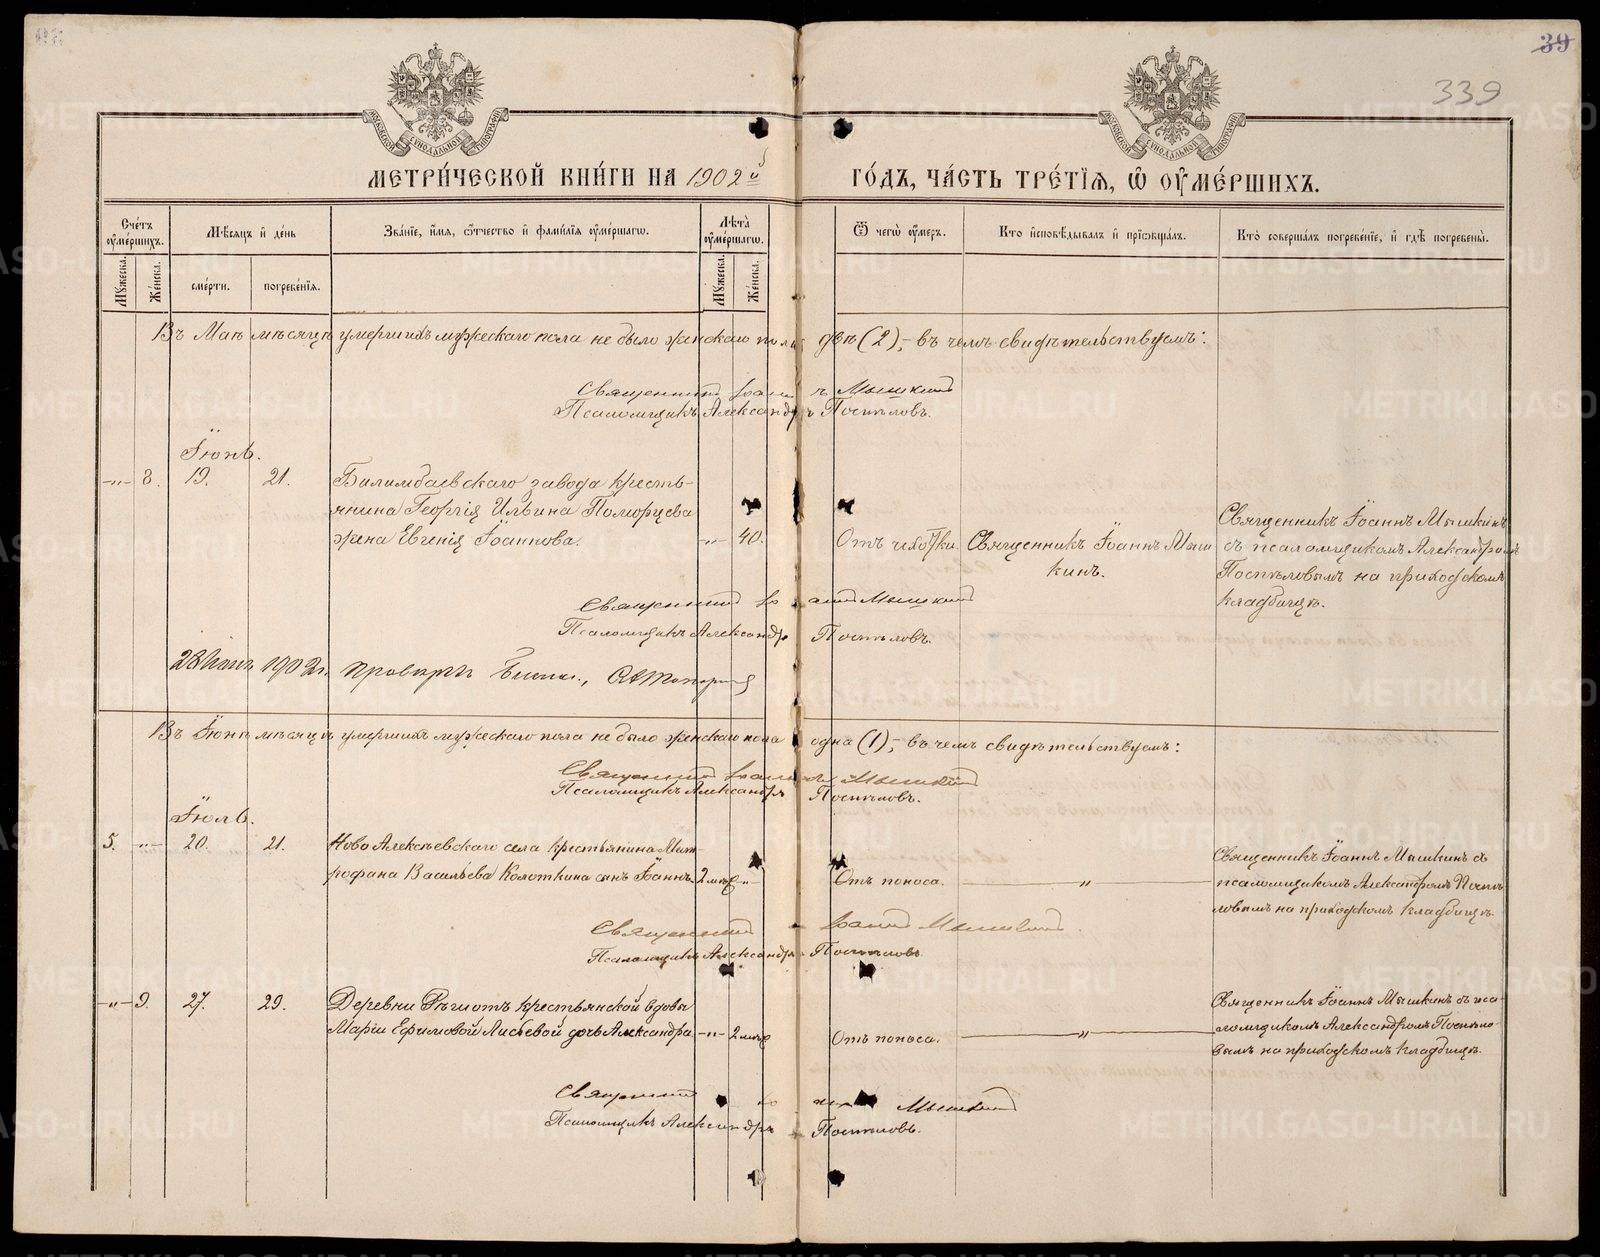 39
339
МЕТРИ́ЧЕСКОЙ КНИ́ГИ НА 1902й ГО́ДЪ, ЧА́СТЬ ТРЕ́ТІЯ, Ѡ ОУ҆МЕ́РШИХЪ.
Сче́тъ оумершихъ.
Мѣсяцъ и де́нь
Зва́нїе, и́мя, ѻ́тчество и фами́лїя оуме́ршагѡ.
Лѣта̀ оуме́ршагѡ.
Ѿ чегѡ̀ оу́меръ.
Кто̀ исповѣ́дывалъ и прїѡбща́лъ.
Кто̀ соверша́лъ погребе́нїе, и гдѣ̀ погребены̀.
Мꙋжеска.
Же́нска.
сме́рти.
погребе́нїѧ.
Мꙋжеска.
Же́нска.
Въ Маѣ мѣсяцѣ умершихъ мужескаго пола не было женскаго пола двѣ (2),- въ чемъ свидѣтельствуемъ:
Священникъ Іоаннъ Мышкинъ
Псаломщикъ Александръ Поспѣловъ.
Іюнь.
-"- 8. 19. 21. Билимбаевскаго завода кресть-
янина Георгія Ильина Поморцева
жена Евгенія Іоаннова. -"- 40. Отъ чахотки. Священникъ Іоаннъ Мыш-
кинъ.
Священникъ Іоаннъ Мышкинъ
съ псаломщикомъ Александромъ
Поспѣловымъ на приходскомъ
кладбищѣ.
Священникъ Іоаннъ Мышкинъ
Псаломщикъ Александръ Поспѣловъ.
28 Іюня 1902г.
Въ Іюнѣ мѣсяцѣ умершихъ мужескаго пола не было женскаго пола одна (1),- въ чемъ свидѣтельствуемъ:
Священникъ Іоаннъ Мышкинъ
Псаломщикъ Александръ Поспѣловъ.
Іюль.
5. -"- 20. 21. Ново Алексѣевскаго села крестьянина Мит-
рофана Васильева Колоткина сынъ Іоаннъ. 2 мѣс -"- Отъ поноса. "
Священникъ Іоаннъ Мышкинъ съ
псаломщикомъ Александромъ Поспѣ-
ловымъ на приходскомъ кладбищѣ.
Священникъ Іоаннъ Мышкинъ
Псаломщикъ Александръ Поспѣловъ
-"- 9. 27. 29. Деревни Рѣшотъ крестьянской вдовы
Маріи Ефимовой Лисьевой дочь Александра. -"- 2 мѣс Отъ поноса. "
Священникъ Іоаннъ Мышкинъ съ пса-
ломщикомъ Александромъ Поспѣло-
вымъ на приходскомъ кладбищѣ.
Священникъ Іоаннъ Мышкинъ
Псаломщикъ Александръ Поспѣловъ.
METRIKI.GASO-URAL.RU